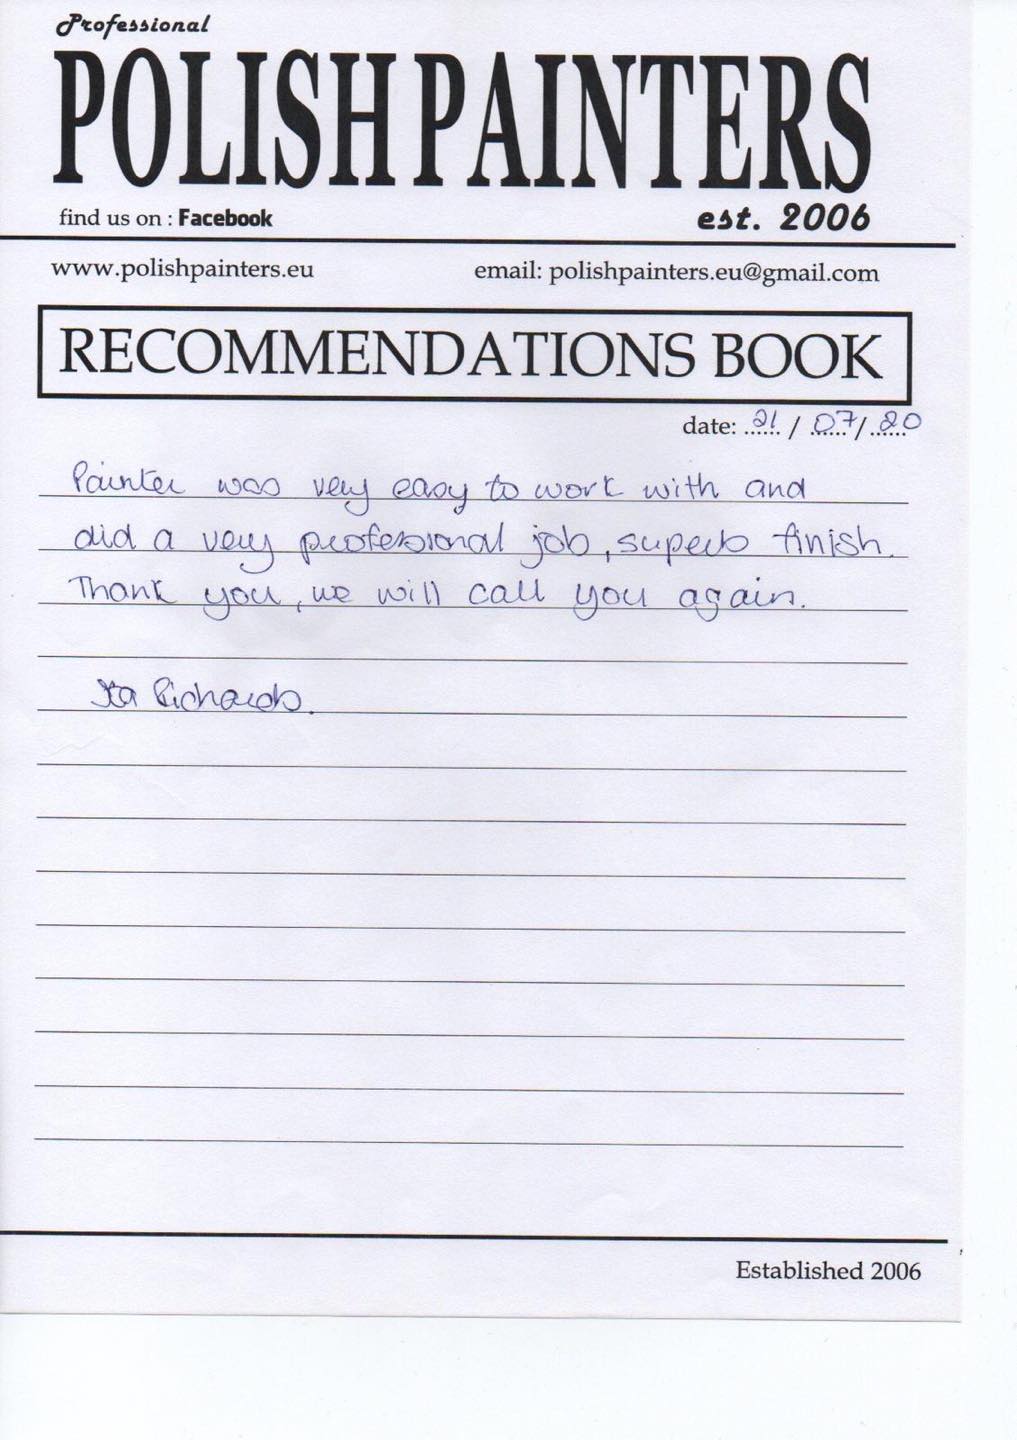 Professional
POLISH PAINTERS
find us on : Facebook
est. 2006
www.polishpainters.eu
email: polishpainters.eu@gmail.com
RECOMMENDATIONS BOOK
date: 21 / 07 / 20
Painter was very easy to work with and
did a very professional job, superb finish.
Thank you, we will call you again.
Richards.
Established 2006